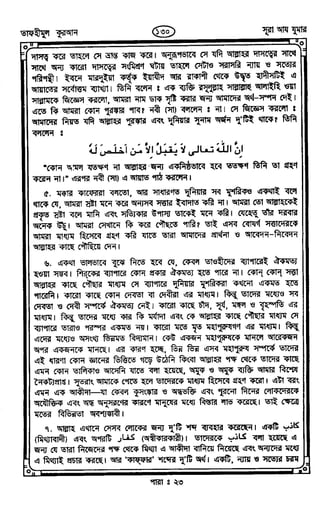 তাফহীমুল কুরআন
১৩০
সূরা আয যুমার
দাসত্ব করে তাহলে সে ভ্রান্ত কাজ করে। অনুরূপভাবে সে যদি আল্লাহর দাসত্বের সাথে
সাথে অন্য কারো দাসত্বের সংমিশ্রণ ঘটায় তাহলে সেটাও সরাসরি ন্যায় ও সত্যের
পরিপন্থী। ইবনে মারদুইয়া কর্তৃক ইয়াযীদ আর রাকাশী থেকে উদ্ধৃত হাদীসটিই এ
আয়াতের সর্বোত্তম ব্যাখ্যা। তিনি বলেন ঃ এক ব্যক্তি রসূলুল্লাহ সাল্লাল্লাহু আলাইহি ওয়া
সাল্লামকে জিজ্ঞেস করলো, আমরা নাম ডাক সৃষ্টি করার জন্য আমাদের অর্থ-সম্পদ দেই।
এতে কি আমরা কোন পুরস্কার পাব? নবী (সা) বললেন ঃ না। সে জিজ্ঞেস করলো ঃ
আমাদের নিয়ত যদি আল্লাহর পুরস্কার এবং দুনিয়ার সুনাম অর্জন দু'টিই থাকে? তিনি
বললেন ঃ
إن الله تعالى لا يقبل الا من اخلص له
"কোন আমল যতক্ষণ না আল্লাহর জন্য একনিষ্ঠভাবে হবে ততক্ষণ তিনি তা গ্রহণ
করেন না।" এরপর নবী (সা) এ আয়াত পাঠ করলেন।
৫. মক্কার কাফেররা বলতো, আর সাধারণত দুনিয়ার সব মুশরিকও একথাই বলে
থাকে যে, আমরা স্রষ্টা মনে করে অন্যসব সত্তার ইবাদাত করি না। আমরা তো আল্লাহকেই
প্রকৃত স্রষ্টা বলে মানি এবং সত্যিকার উপাস্য তাকেই মনে করি। যেহেতু তাঁর দরবার
অনেক উঁচু। আমরা সেখানে কি করে পৌঁছতে পারি? তাই এসব বোযর্গ সত্তাদেরকে
আমরা মাধ্যম হিসেবে গ্রহণ করি যাতে তারা আমাদের প্রার্থনা ও আবেদন-নিবেদন
আল্লাহর কাছে পৌঁছিয়ে দেন।
৬. একথা ভালভাবে বুঝে নিতে হবে যে, কেবল তাওহীদের ব্যাপারেই ঐকমত্য
হওয়া সম্ভব। শিরকের ব্যাপারে কোন প্রকার ঐকমত্য হতে পারে না। কোন্ কোন্ সত্তা
আল্লাহর কাছে পৌঁছার মাধ্যম সে ব্যাপারে দুনিয়ার মুশরিকরা কখনো একমত হতে
পারেনি। কারো কাছে কোন দেবতা বা দেবীরা এর মাধ্যম। কিন্তু তাদের মধ্যেও সব
দেবতা ও দেবী সম্পর্কে ঐকমত্য নেই। কারো কাছে চাঁদ, সূর্য, মঙ্গল ও বৃহস্পতি এর
মাধ্যম। কিন্তু তাদের মধ্যে কার কি মর্যাদা এবং কে আল্লাহর কাছে পৌঁছার মাধ্যম সে
ব্যাপারে তারাও পরস্পর একমত নয়। কারো মতে মৃত মহাপুরুষগণ এর মাধ্যম। কিন্তু
এদের মধ্যেও অসংখ্য ভিন্নমত বিদ্যমান। কেউ একজন মহাপুরুষকে মানলে আরেকজন
অপর একজনকে মানছে। এর কারণ হচ্ছে, ভিন্ন ভিন্ন এসব মহাপুরুষ সম্পর্কে তাদের
এই ধারণা কোন জ্ঞানের ভিত্তিতে গড়ে উঠেনি কিংবা আল্লাহর পক্ষ থেকে তাদের কাছে
এমন কোন তালিকাও আসেনি যাতে বলা হয়েছে, অমুক ও অমুক ব্যক্তি আমার বিশেষ
নৈকট্যপ্রাপ্ত। সুতরাং আমাকে পেতে হলে তাদেরকে মাধ্যম হিসেবে গ্রহণ করো। এটা বরং
এমন এক আকীদা—যা কেবল কুসংস্কার ও অন্ধভক্তি এবং পুরনো দিনের লোকদেরকে
অযৌক্তিক এবং অন্ধ অনুসরণের কারণে মানুষের মধ্যে বিস্তার লাভ করেছে। তাই এ ক্ষেত্রে
মতের বিভিন্নতা অবশ্যম্ভাবী।
৭. আল্লাহ এখানে সেসব লোকের জন্য দু'টি শব্দ ব্যবহার করেছেন। একটি كاذب
(মিথ্যাবাদী) এবং অপরটি كفار (অস্বীকারকারী)। তাদেরকে كاذب বলা হয়েছে এ
জন্য যে তারা নিজেদের পক্ষ থেকে মিথ্যা এ আকীদা বানিয়ে নিয়েছে এবং অন্যদের মধ্যে
এ মিথ্যাই প্রচার করছে। আর 'কাফফার' শব্দের দু'টি অর্থ। একটি, ন্যায় ও সত্যের চরম
পারা ঃ ২৩